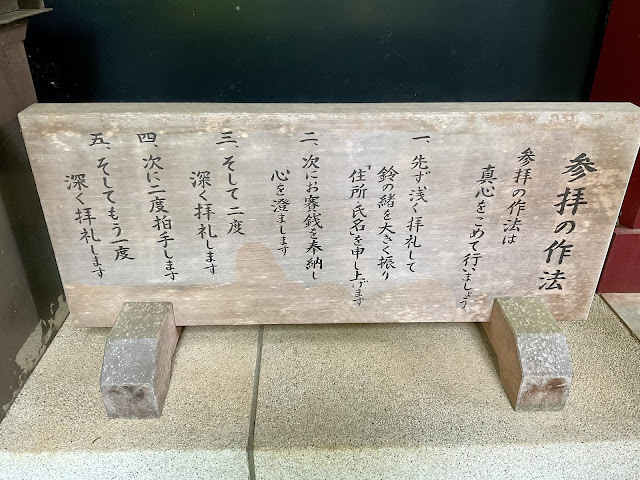 参拝の作法
参拝の作法は
真心をこめて行いましょう
一、先ず浅く拝礼して
鈴の緒を大きく振り
「住所氏名」を申し上げます
二、次にお賽銭を奉納し
心を澄まします
三、そして二度
深く拝礼します
四、次に二度拍手します
五、そしてもう一度
深く拝礼します